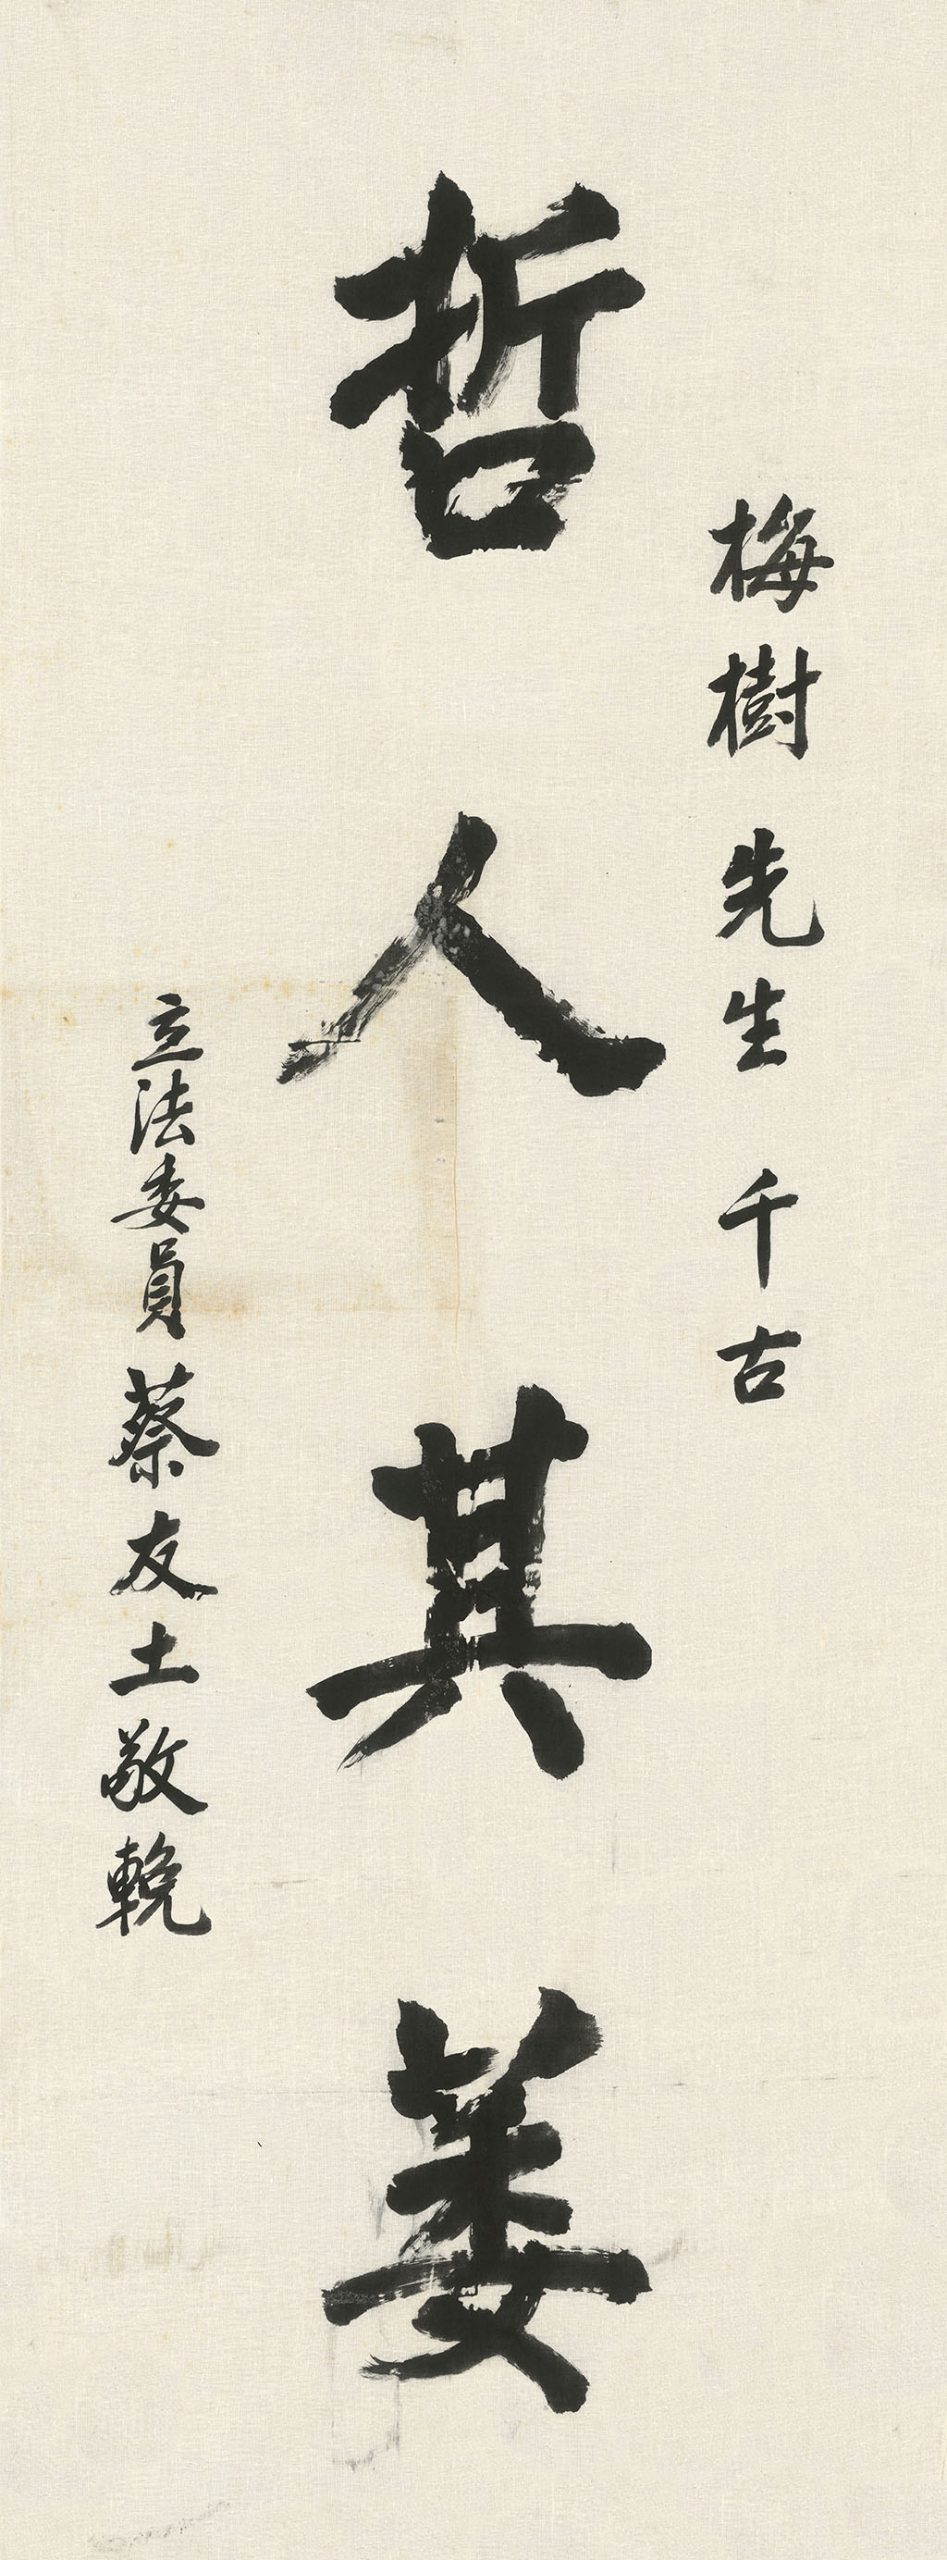 梅樹先生千古
哲人其萎
立法委員蔡友土敬輓